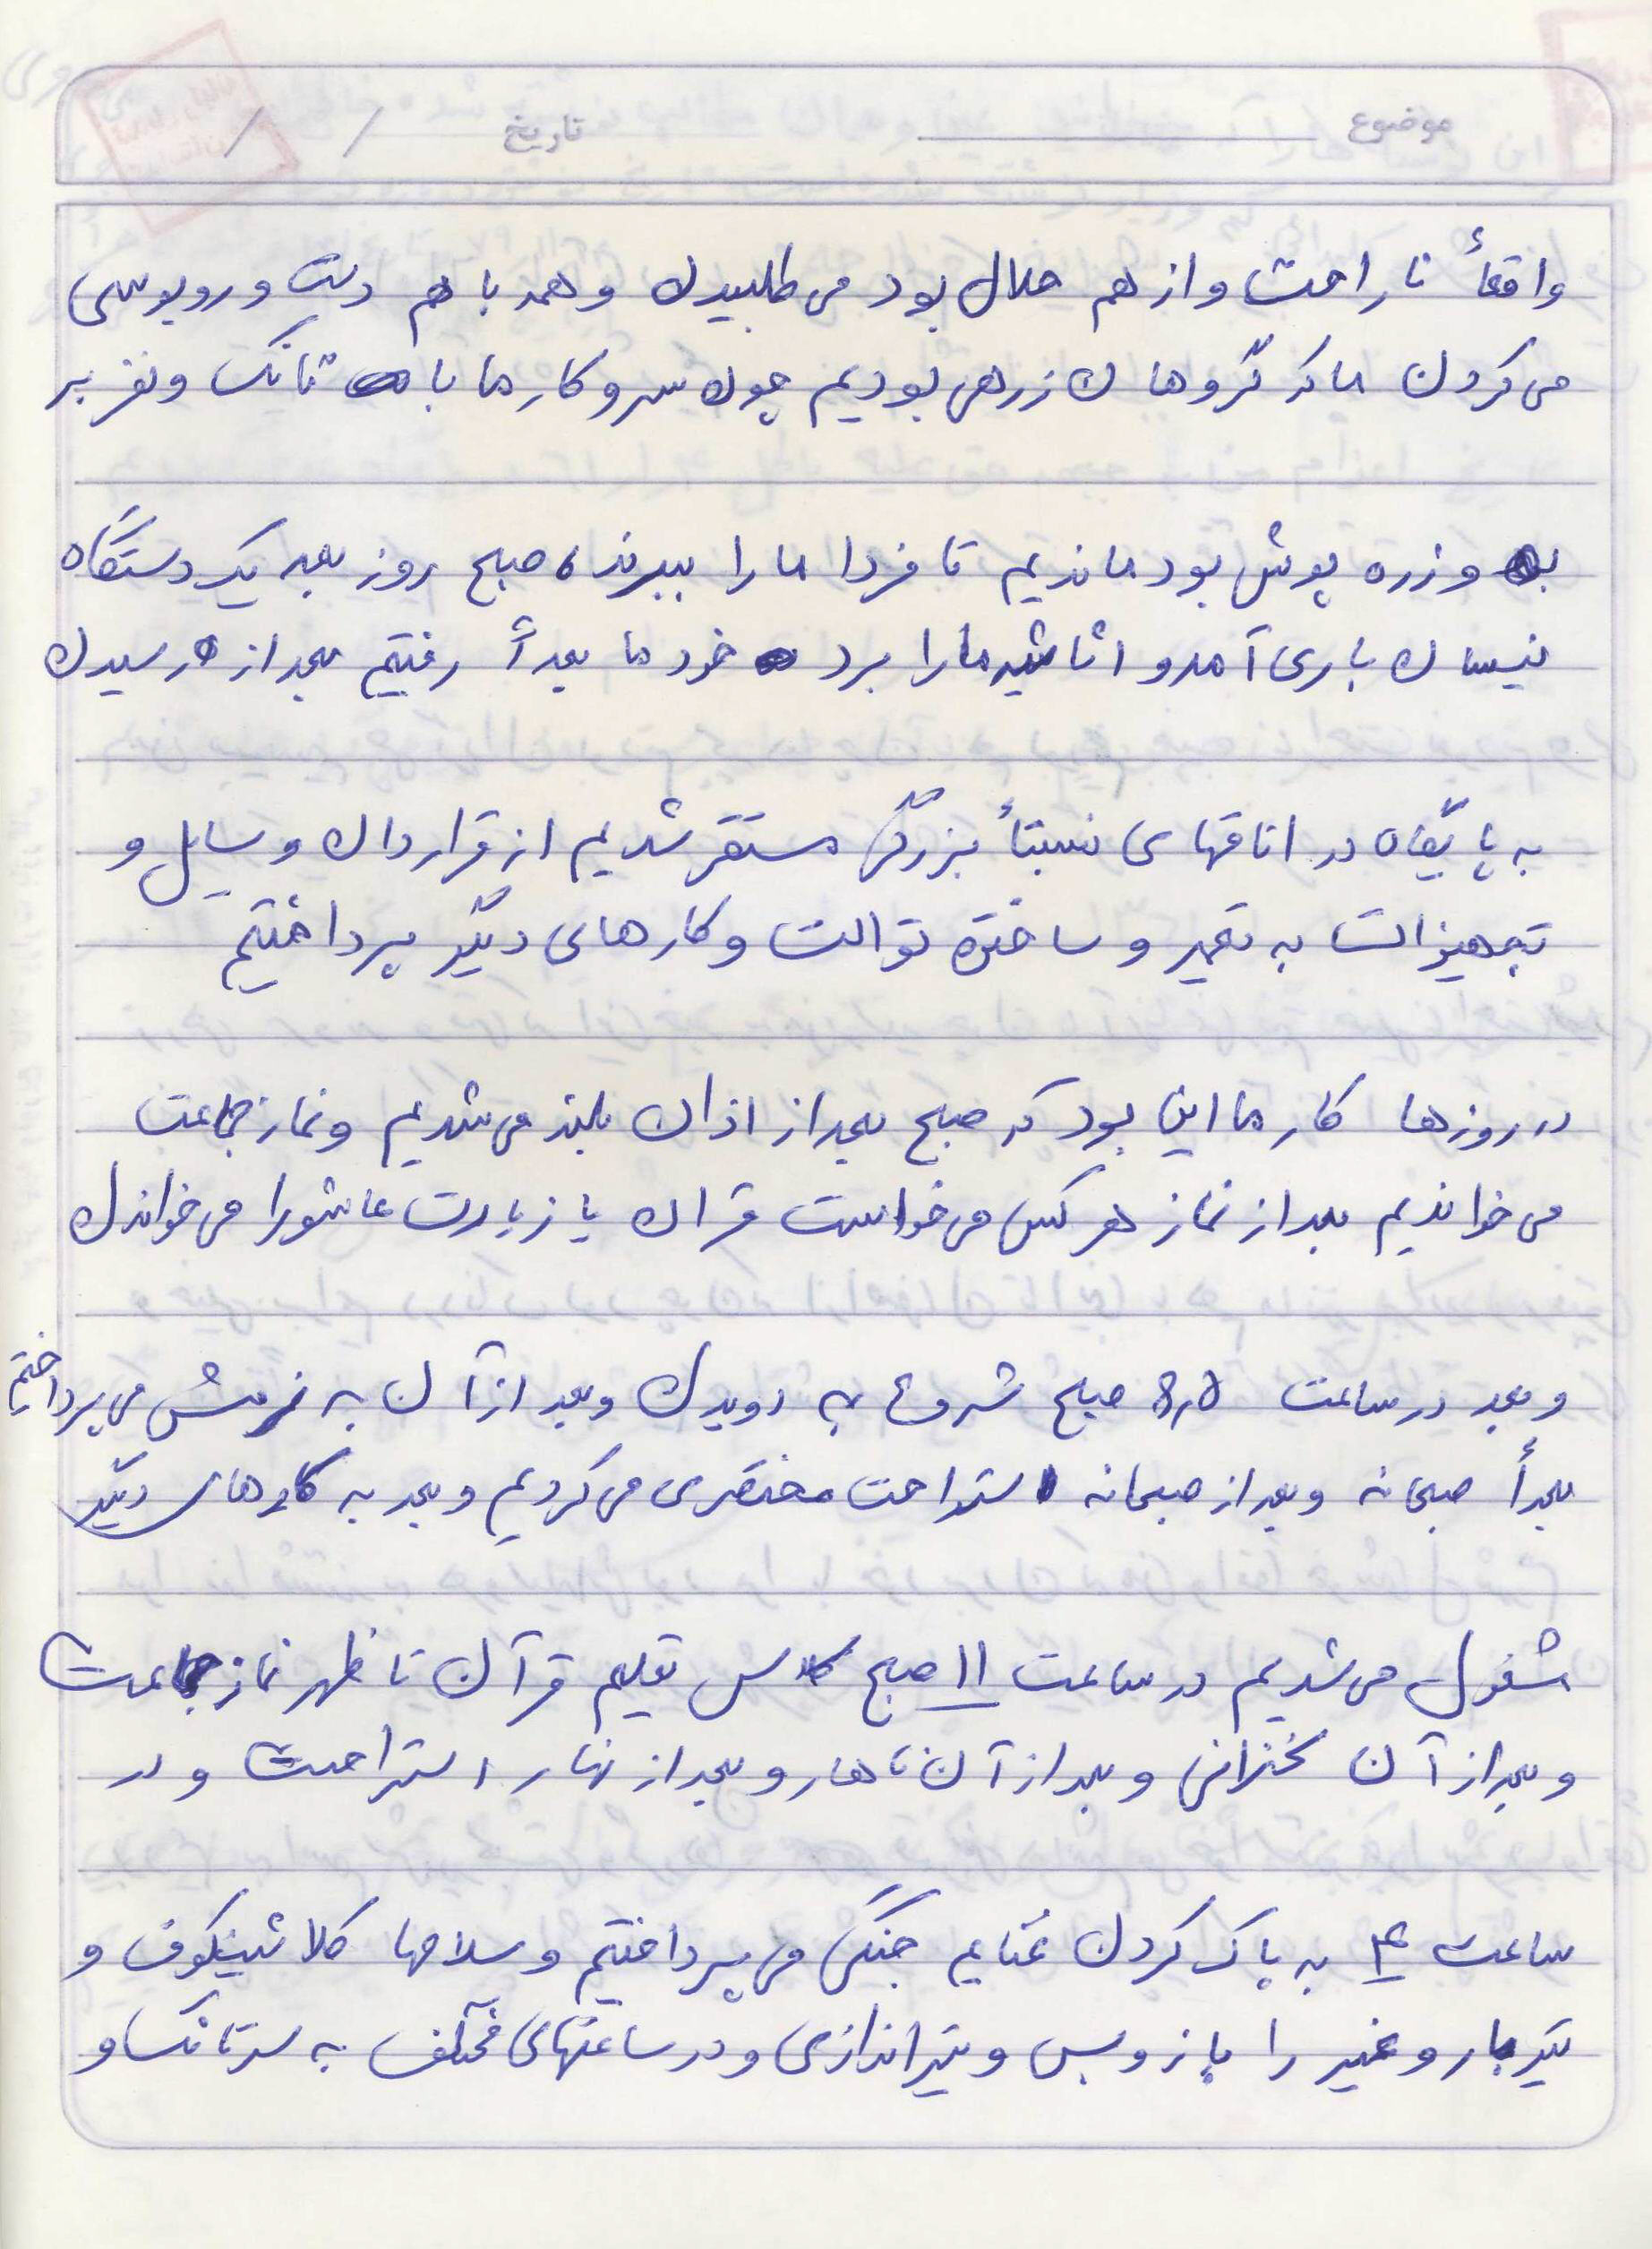 موضوع
تاریخ / /
واقعاً ناراحت و از هم حلال بود می طلبیدن و همه با هم دست و روبوسی
می کردن ما که گروهان زرهی بودیم چون سر و کار ما با تانک و نفر بر
و زره پوش بود ماندیم تا فردا ما را ببرند، صبح روز بعد یک دستگاه
نیسان باری آمد و اثاثیه ما را برد خود ما بعداً رفتیم بعد از رسیدن
به پایگاه در اتاقهای نسبتاً بزرگی مستقر شدیم از قرار دادن وسایل و
تجهیزات به تعمیر و ساختن توالت و کارهای دیگر پرداختیم
در روزها کار ما این بود که صبح بعد از اذان بلند می شدیم و نماز جماعت
می خواندیم بعد از نماز هر کس می خواست قران یا زیارت عاشورا می خواندن
و بعد در ساعت صبح شروع به دویدن و بعد از آن به نرمش می پرداختیم
بعداً صبحانه و بعد از صبحانه استراحت مختصری می کردیم و بعد به کارهای دیگر
مشغول می شدیم در ساعت ۱۱ صبح کلاس تعلیم قرآن تا ظهر نماز جماعت
و بعد از آن سخنرانی و بعد از آن ناهار و بعد از نهار استراحت و در
ساعت ۴ به پاک کردن غنایم جنگی می پرداختیم و سلاحها کلاشینکوف و
تیربار و غیر را باز و بس و تیراندازی و در ساعتهای مختلف به سر تانک و